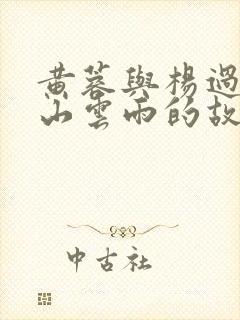 黃蓉與楊過
山雲雨的故
中古社